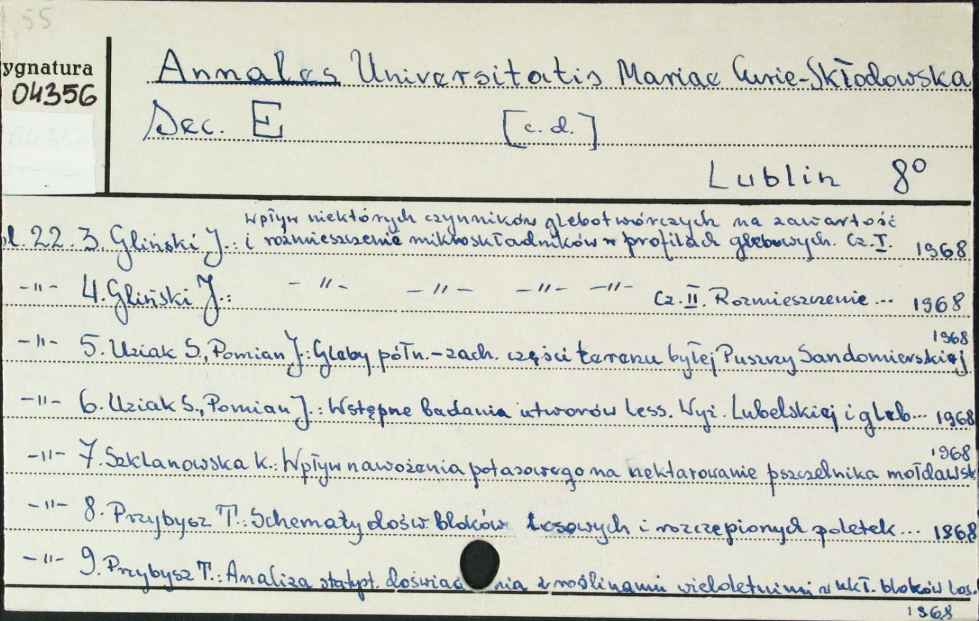 55
ygnatura
04356
Annales Universitatis Mariae Curie-Skłodowska
Sec. E [c.d.]
Lublin 8°
Wpływ niektórych czynników glebotwórczych na zawartość
22. 3. Gliński J.: i rozmieszczenie mikroskładników w profilach glebowych. Cz. I. 1968
-"- 4. Gliński J.: -"- -"- -"- -"- Cz. II. Rozmieszczenie... 1968
-"- 5. Uziak S., Pomian J.: Gleby półn.-zach. części terenu byłej Puszczy Sandomierskiej. 1968
-"- 6. Uziak S., Pomian J.: Wstępne badania utworów less. Wyż. Lubelskiej i gleb... 1968
-"- 7. Szklanowska K.: Wpływ nawożenia potasowego na nektarowanie pszczelnika mołdawsk 1968
-"- 8. Przybysz T.: Schematy dośw. bloków losowych i rozczepionych poletek... 1968
-"- 9. Przybysz T.: Analiza statyst. doświad nia z roślinami wieloletnimi w ukł. bloków los.
1968